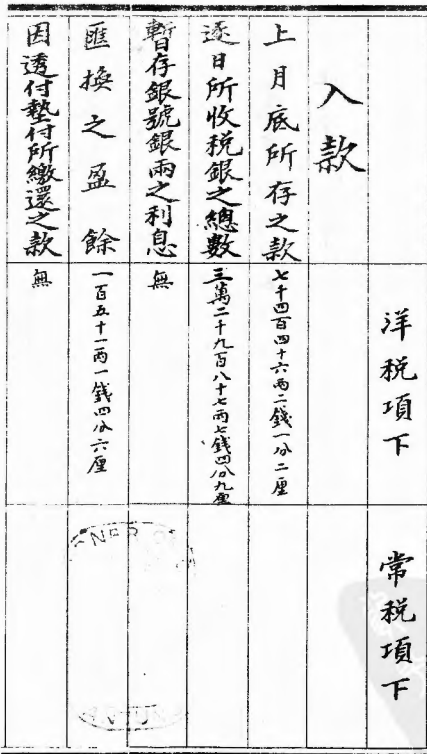 洋稅項下
常稅項下
入款
上月底所存之款
七千四百四十六兩二錢一分二厘
逐日所收稅銀之總數
三萬二千九百八十七兩七錢四分九厘
暫存銀號銀兩之利息
無
匯換之盈餘
一百五十一兩一錢四分六厘
因透付墊付所繳還之款
無